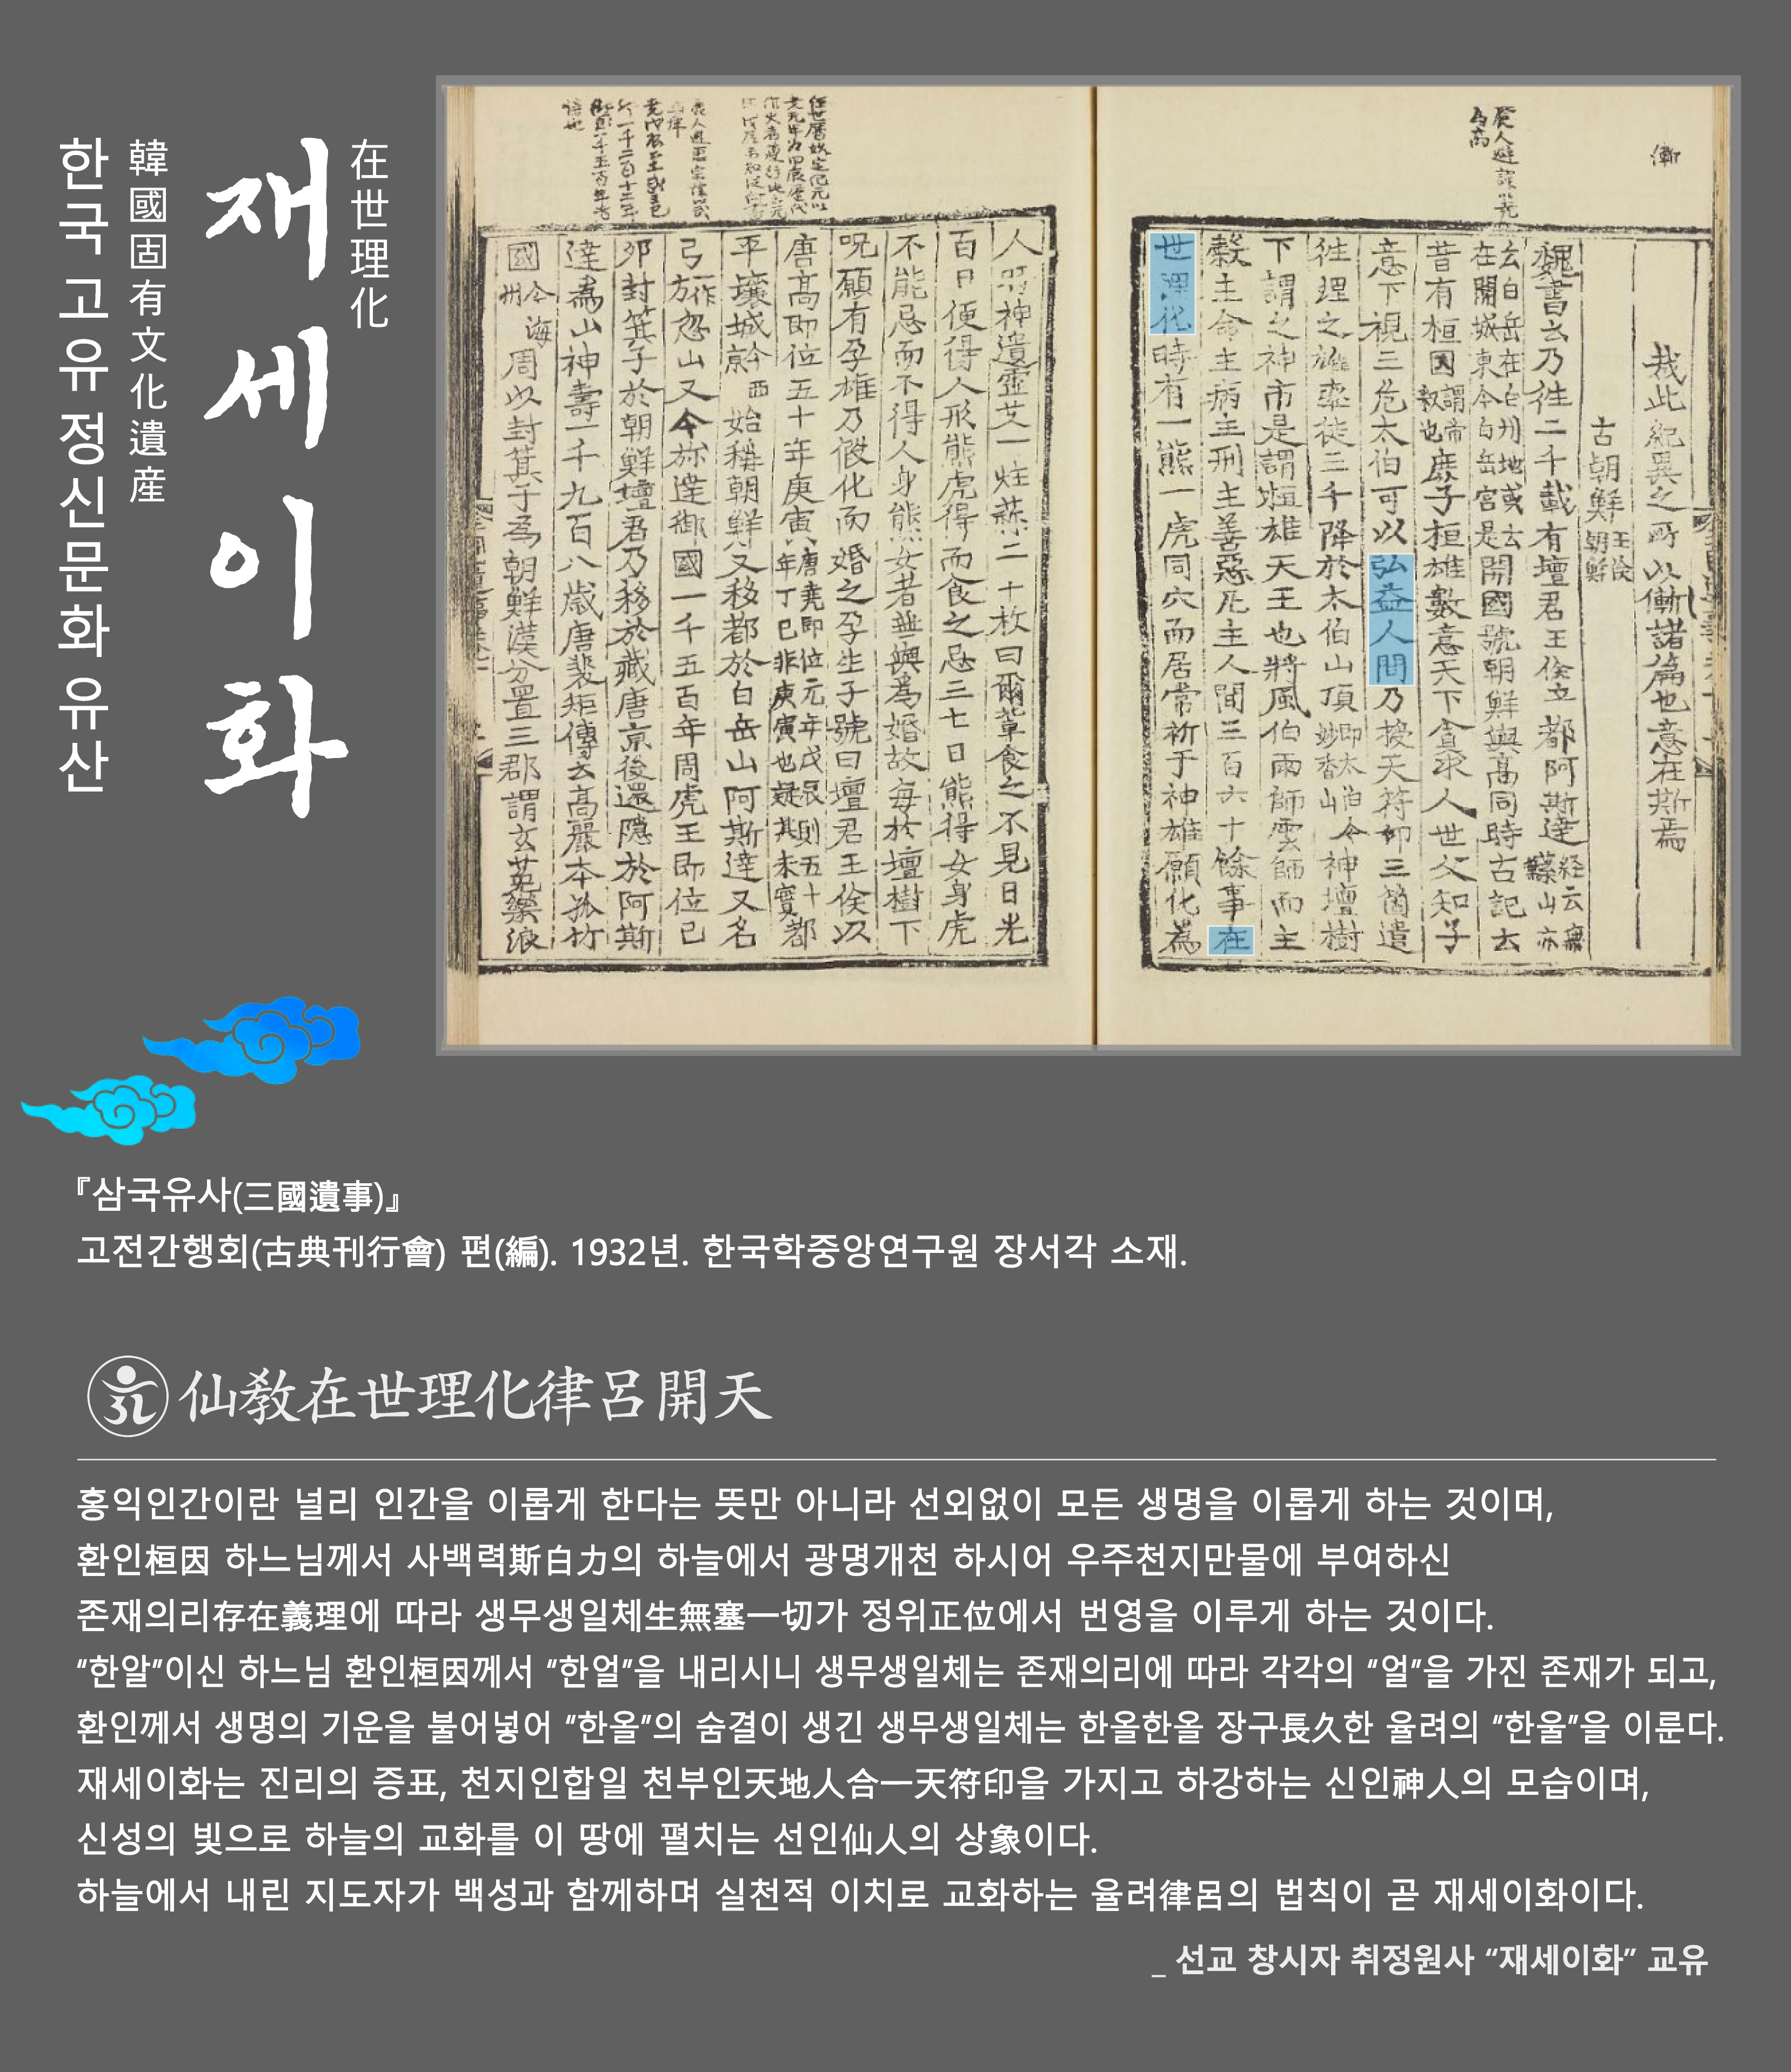 在世理化
재세이화
韓國固有文化遺産
한국 고유 정신문화 유산
此紀異之所以慚諸篇也意在斯焉
古朝鮮 王倹朝鮮
魏書云乃徃二千載有壇君王倹立都阿斯達 経云無葉山亦
云白岳在白州地或云在開城東今白岳宮是 開國號朝鮮與高同時古記云
昔有桓因 謂帝釋也 庶子桓雄數意天下貪求人世父知子
意下視三危太伯可以弘益人間乃授天符印三箇遣
徃理之雄率徒三千降於太伯山頂 即太伯今妙香山 神壇樹
下謂之神市是謂桓雄天王也將風伯雨師雲師而主
糓主命主病主刑主善惡凡主人間三百六十餘事在
世理化時有一熊一虎同穴而居常祈于神雄願化為
人時神遺靈艾一炷蒜二十枚曰爾軰食之不見日光
百日便得人形熊虎得而食之忌三七日熊得女身虎
不能忌而不得人身熊女者無與為婚故每於壇樹下
呪願有孕雄乃假化而婚之孕生子號曰壇君王倹以
唐高即位五十年庚寅 唐堯即位元年戊辰則五十年丁巳非庚寅也疑其未實 都
平壤城 今西京 始稱朝鮮又移都於白岳山阿斯達又名
弓 一作方 忽山又今旀達御國一千五百年周虎王即位己
卯封箕子於朝鮮壇君乃移於藏唐京後還隱於阿斯
達為山神壽一千九百八歳唐裴矩傳云高麗本孤竹
國 今海州 周以封箕子為朝鮮漢分置三郡謂玄菟樂浪
『삼국유사(三國遺事)』
고전간행회(古典刊行會) 편(編). 1932년. 한국학중앙연구원 장서각 소재.
仙教在世理化律呂開天
홍익인간이란 널리 인간을 이롭게 한다는 뜻만 아니라 선외없이 모든 생명을 이롭게 하는 것이며,
환인桓因 하느님께서 사백력斯白力의 하늘에서 광명개천 하시어 우주천지만물에 부여하신
존재의리存在義理에 따라 생무생일체生無塞一切가 정위正位에서 번영을 이루게 하는 것이다.
“한알”이신 하느님 환인桓因께서 “한얼”을 내리시니 생무생일체는 존재의리에 따라 각각의 “얼”을 가진 존재가 되고,
환인께서 생명의 기운을 불어넣어 “한올”의 숨결이 생긴 생무생일체는 한올한올 장구長久한 율려의 “한울”을 이룬다.
재세이화는 진리의 증표, 천지인합일 천부인天地人合一天符印을 가지고 하강하는 신인神人의 모습이며,
신성의 빛으로 하늘의 교화를 이 땅에 펼치는 선인仙人의 상象이다.
하늘에서 내린 지도자가 백성과 함께하며 실천적 이치로 교화하는 율려律呂의 법칙이 곧 재세이화이다.
_ 선교 창시자 취정원사 “재세이화” 교유